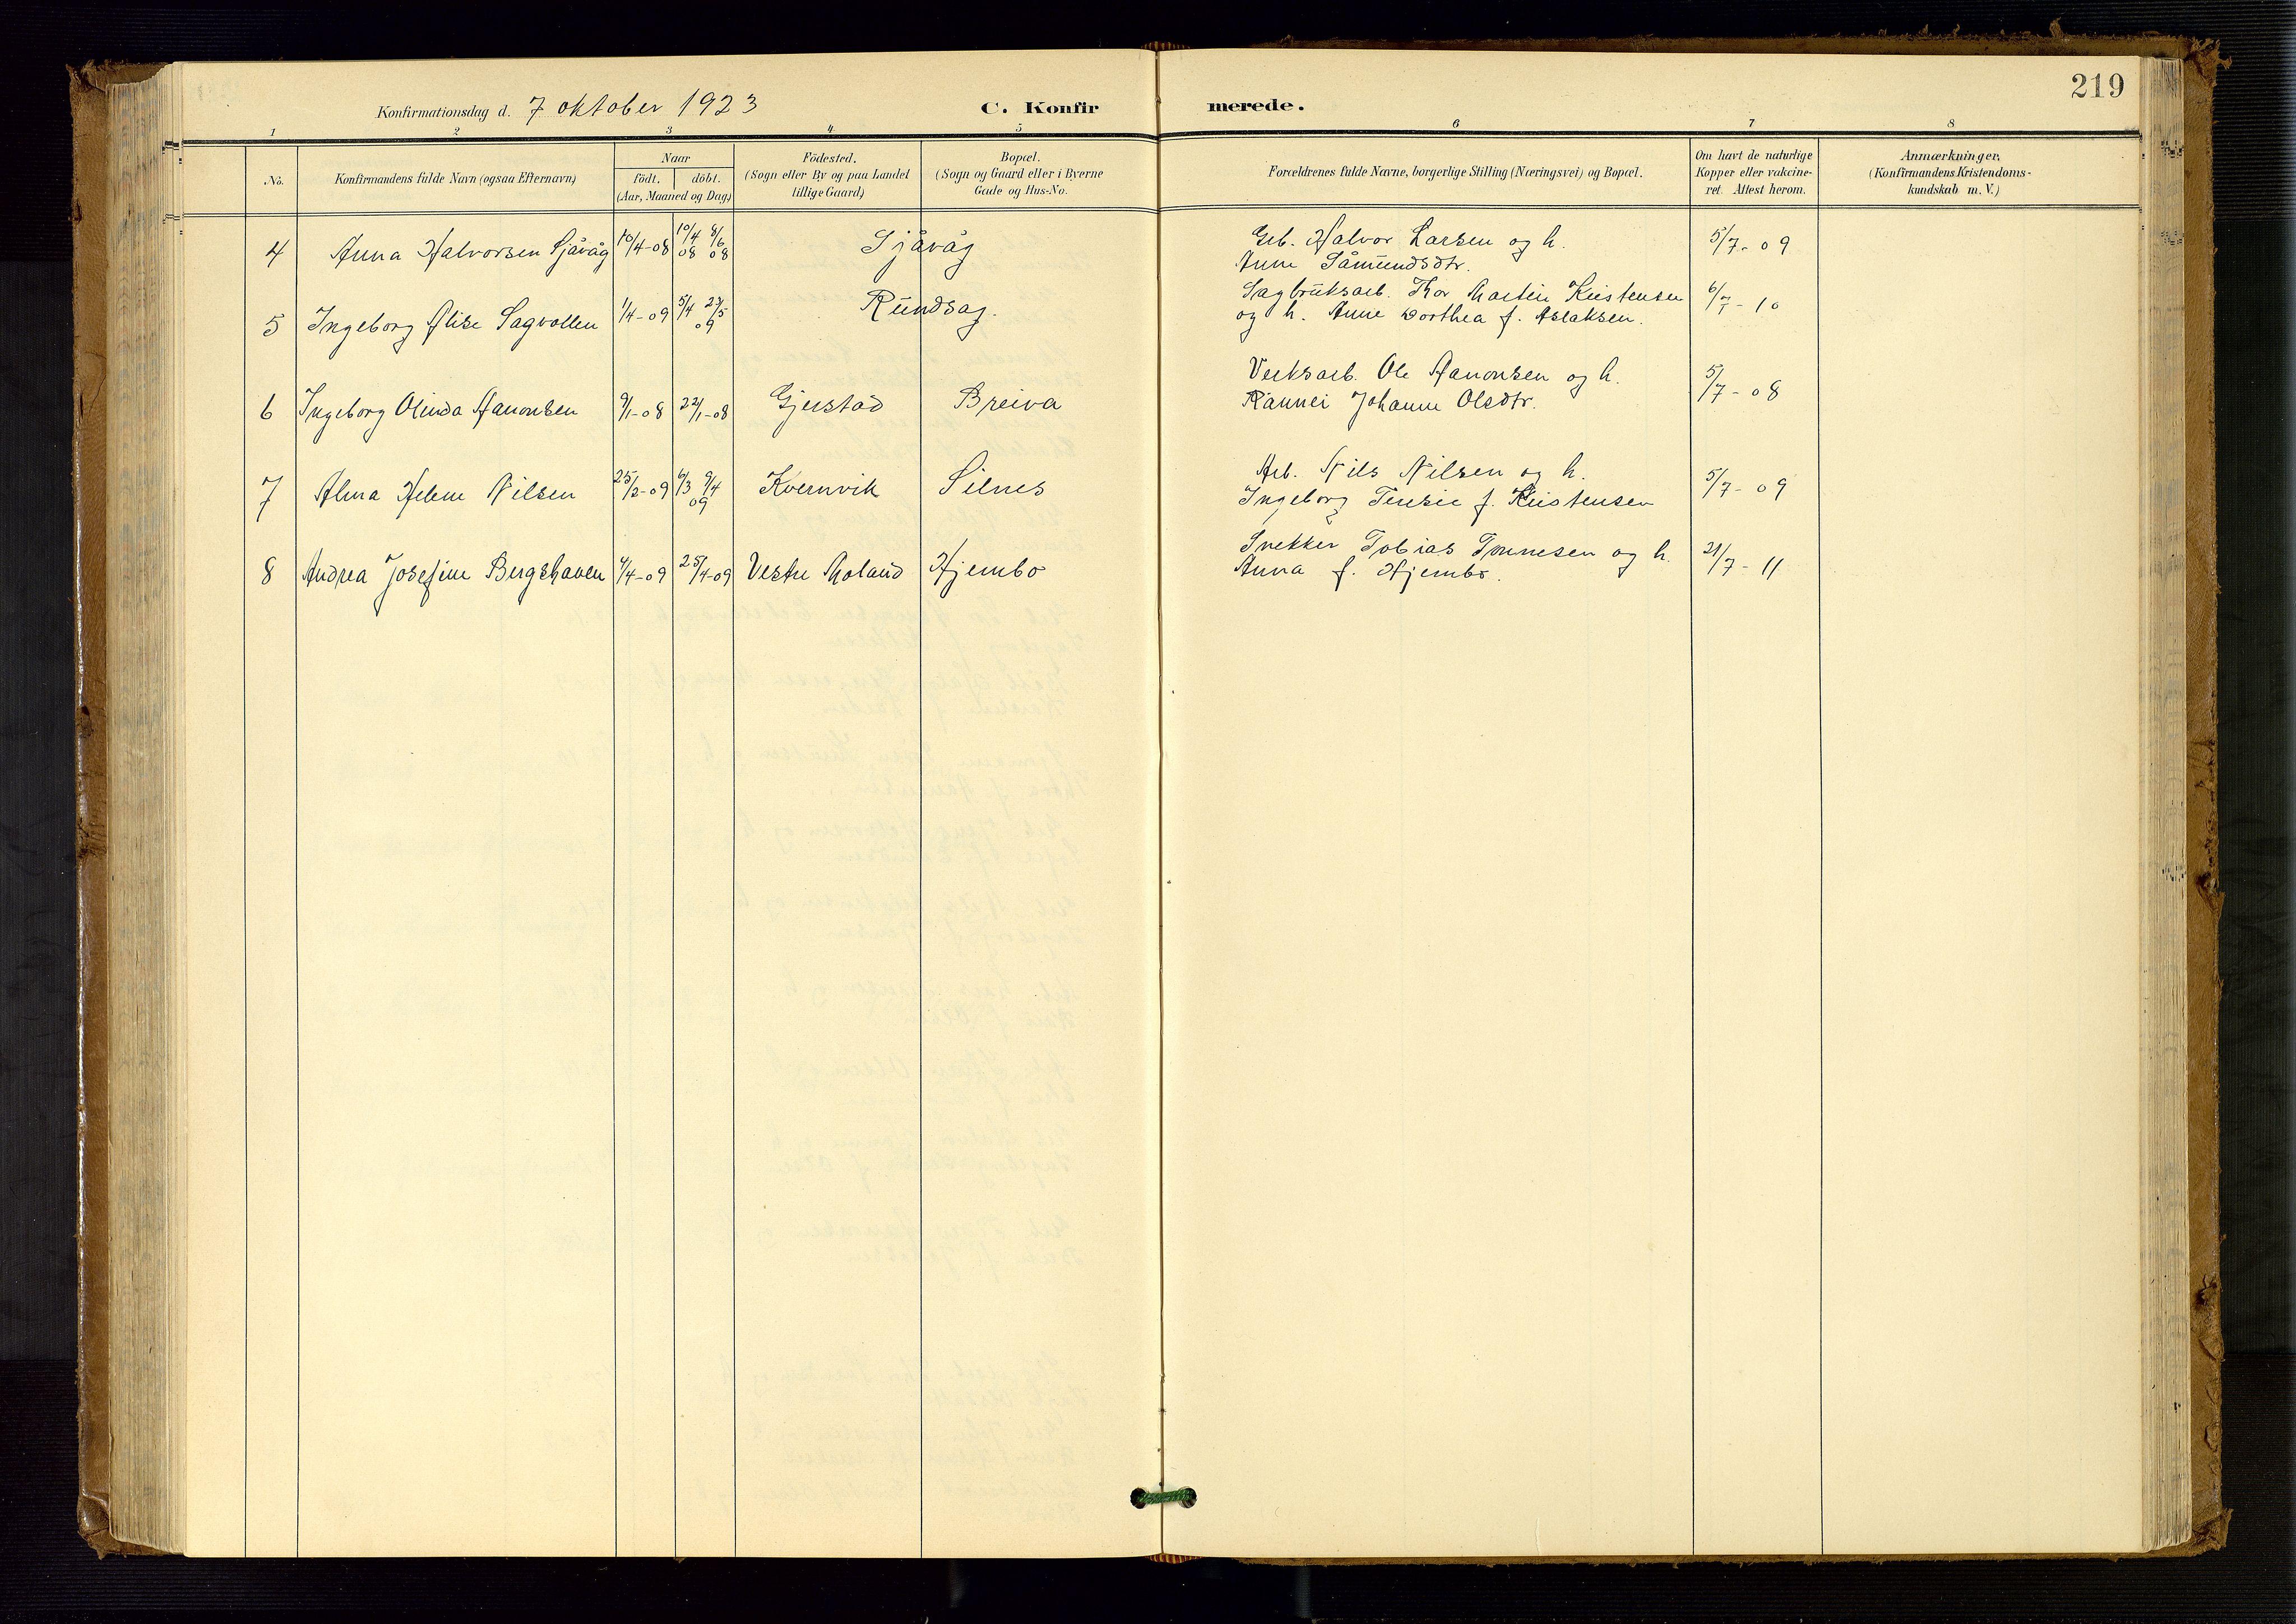 219
Konfirmationsdag d. 7 oktober 1923 C. Konfirmerede.
1 2 3 4 5 6 7 8
No.
Konfirmandens fulde Navn (ogsaa Efternavn)
Naar
födt. döbt.
(Aar, Maaned og Dag)
Födested.
(Sogn eller By og paa Landet
tillige Gaard)
Bopæl.
(Sogn og Gaard eller i Byerne
Gade og Hus-No.
Forældrenes fulde Navne, borgerlige Stilling (Næringsvei) og Bopæl.
Om havt de naturlige
Kopper eller vakcine-
ret. Attest herom.
Anmærkninger,
(Konfirmandens Kristendoms-
kundskab m. V.)
4 Anna Halvorsen Sjåvåg 10/4-08 10/4 08 8/6 08 Sjåvåg Grb. Halvor Larsen og h.
Anne Såmundsdtr. 5/7-09
5 Ingeborg Alise Sagvollen 1/4-09 5/4 23/5 09 Rundsag. Sagbruksarb. Thor Martin Kristensen
og h. Anne Dorthea f. Aslaksen. 6/7-10
6 Ingeborg Olinda Aanonsen 9/1-08 22/1-08 Gjerstad Breiva Verksarb. Ole Aanonsen og h.
Rannei Johanne Olsdtr. 5/7-08
7 Alma Helene Nilsen 25/2-09 6/3 9/4 09 Kvernvik Silnes Arb. Nils Nilsen og h.
Ingeborg Teresie f. Kristensen 5/7-09
8 Andrea Josefine Bergshaven 4/4-09 25/4-09 Vestre Moland Hjembo Snekker Tobias Tønnesen og h.
Anna f. Hjembo. 21/7-11